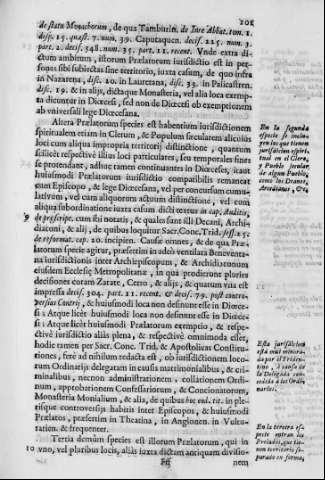 101
de statu Monachorum, de qua Tamburin. de Iure Abbat. tom. 1.
disp. 15. quæst. 7. num. 39. Caputaquen. decis. 225. num. 3.
part. 2. decis. 548. num. 35. part. 11. recent. Vnde extra di-
ctum ambitum, istorum Prælatorum iurisdictio est in per-
sonas sibi subiectas sine territorio, iuxta casum, de quo infra
in Nazarena, disc. 20. in Lauretana, disc. 33. in Palicastren.
disc. 19. & in alijs, dictaque Monasteria, vel alia loca exemp-
ta dicuntur in Diœcesi, sed non de Diœcesi ob exemptionem
ab vniuersali lege Diœcesana.
Altera Prælatorum species est habentium iurisdictionem
spiritualem etiam in Clerum, & Populum sæcularem alicuius
loci cum aliqua impropria territorij distinctione, quantum
scilicet respectiuè illius loci particularis, seu temporales fines
se protendant, adhuc tamen continuantis in Diœcesi, itaut
huiusmodi Prælatorum iurisdictio compatibilis remaneat
cum Episcopo, & lege Diœcesana, vel per concursum cumu-
latiuum, vel cum aliquorum actuum distinctione, vel cum
aliqua subordinatione iuxta casum dicti textus in cap. Auditis,
9 de præscript. cum ibi notatis, & quales sunt illi Decani, Archi-
diaconi, & alij, de quibus loquitur Sacr. Conc. Trid. sess. 25.
de reformat. cap. 20. incipien. Causæ omnes, & de qua Præ-
latorum specie agitur, præsertim in adeò ventilata Beneventa-
na iurisdictionis inter Archiepiscopum, & Archidiaconum
eiusdem Ecclesiæ Metropolitanæ, in qua prodierunt plures
decisiones coram Zarate, Cerro, & alijs, & quarum vna est
impressa decis. 304. part. 11. recent. & decis. 79. post
Centro, & huiusmodi loca non desinunt esse in Diœce-
si: Atque licèt huiusmodi loca non desinunt esse in Diœce-
si: Atque licèt huiusmodi Prælatorum exemptio, & respe-
ctiuè iurisdictio aliàs plena, & respectiuè omnimoda esset,
hodie tamen per Sacr. Conc. Trid. & Apostolicam Constitu-
tiones, ferè ad nihilum redacta est, ob iurisdictionem loco-
rum Ordinarijs delegatam in causis matrimonialibus, & cri-
minalibus, necnon administrationem, collationem Ordi-
num, approbationem Confessariorum, & Concionatorum,
Monasteria Monialium, & alia, de quibus hoc eod. tit. in ple-
risque controuersijs habitis inter Episcopos, & huiusmodi
Prælatos, præsertim in Theatina, in Anglonen. in Vultu-
ration. & frequenter.
Tertia demùm species est illorum Prælatorum, qui in
10 vno, vel pluribus locis, aliàs iuxta dictam antiquam diuisio-
nem
En la segunda
especie se inclu-
yen los que tienen
jurisdicion espiri-
tual en el Clero,
y Pueblo secular
de algun Pueblo,
como los Deanes,
Arcedianos, &c.
Esta jurisdicion
está mui minora-
da por el Triden-
tino, à causa de
la Delegada con-
cedida à los Ordi-
narios.
En la tercera es-
pecie entran los
Prelados, que tie-
nen territorio se-
parado en forma,